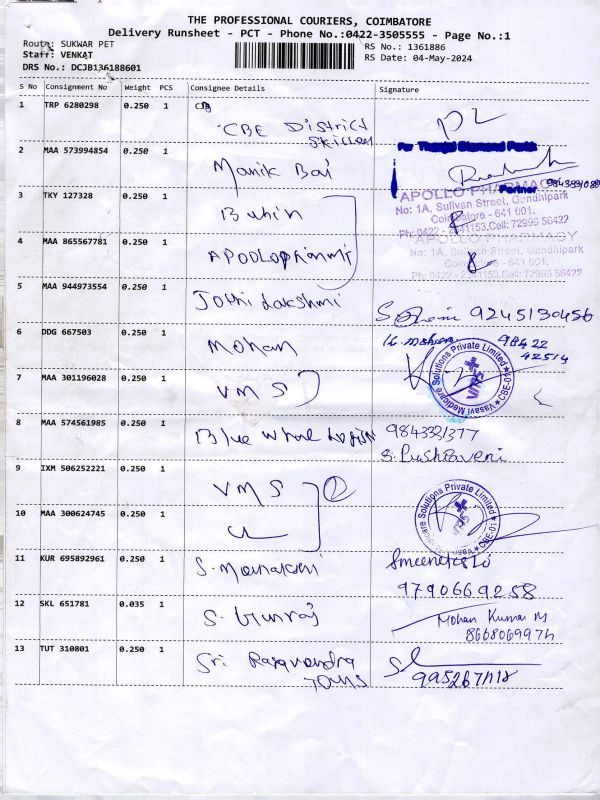 THE PROFESSIONAL COURIERS, COIMBATORE
Delivery Runsheet - PCT - Phone No.:0422-3505555 - Page No.:1
Route: SUKWAR PET
Staff: VENKAT
DRS No.: DCJB136188601
RS No.: 1361886
RS Date: 04-May-2024
S No Consignment No Weight PCS Consignee Details Signature
1 TRP 6280298 0.250 1
CBE District
2 MAA 573994854 0.250 1 Manik Bai
Partner
3 TKY 127328 0.250 1
APOLLO PHARMACY
No: 1A, Sullivan Street, Gandhipark
Coimbatore - 641 001.
Cell: 72999 56422
4 MAA 865567781 0.250 1
APOLLO PHARMACY
No: 1A, Sullivan Street, Gandhipark
Coimbatore - 641 001.
Cell: 72999 56422
5 MAA 944973554 0.250 1 Jothi Lakshmi 9245130456
6 DDG 667503 0.250 1 Mohan
7 MAA 301196028 0.250 1 VMS
Vasavi Medicare Solutions Private Limited CBE-01
VMS
8 MAA 574561985 0.250 1 Blue Whale 9843331377
9 IXM 506252221 0.250 1 VMS 2
Vasavi Medicare Solutions Private Limited CBE-01
10 MAA 300624745 0.250 1
11 KUR 695892961 0.250 1 S. Meenakshi
9790669258
12 SKL 651781 0.035 1 Mohan Kumar M
13 TUT 310801 0.250 1 Sri